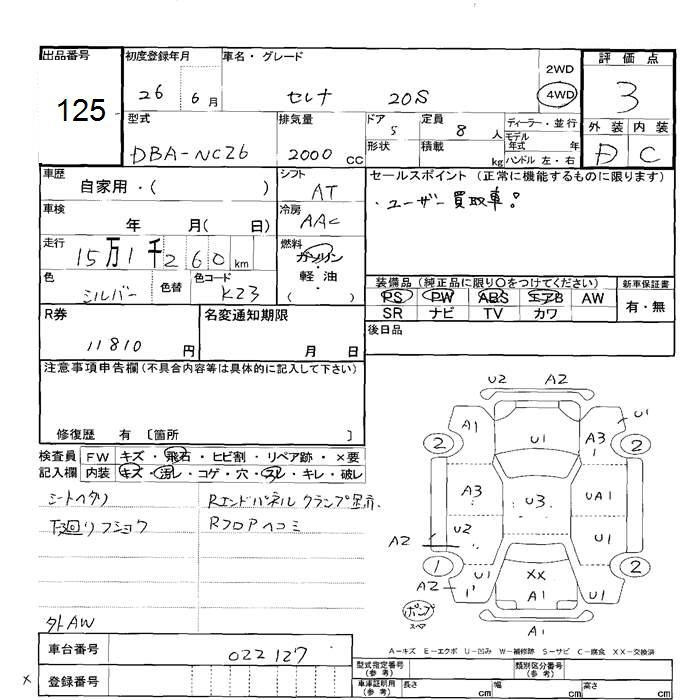 出品番号 初度登録年月 車名・グレード 評価点
125 26 6月 セレナ 20S 2WD 4WD 3
型式 排気量 ドア 5 定員 8 人 ディーラー・並行 外装 内装
DBA-NC26 2000 CC 形状 積載 kg モデル年式 年 ハンドル 左・右 D C
車歴 自家用・( ) シフト AT セールスポイント (正常に機能するものに限ります)
車検 年 月( 日) 冷房 AAC ・ユーザー買取車!
走行 15万1千260km 燃料 ガソリン・軽油 ( )
色 シルバー 色替 色コード K23 装備品 (純正品に限り〇をつけてください) 新車保証書
PS PW ABS エアB AW 有・無
R券 名変通知期限 SR ナビ TV カワ
11810 円 月 日 後日品
注意事項申告欄 (不具合内容等は具体的に記入して下さい)
修復歴 有 〔箇所 〕
検査員 FW キズ・飛石・ヒビ割・リペア跡・×要
記入欄 内装 キズ・汚レ・コゲ・穴・スレ・キレ・破レ
シートヘタリ Rエンドパネル クランプ
下廻リフショウ Rフロアヘコミ
外AW
車台番号 022127
× 登録番号
U2 A2
A1 U1 A3 U1
2 2
A3 U3 UA1
A2 U2 U1
1 2
A2 U1 XX U1 A1
A1
ポンプ
スペア
A1
A-キズ E-エクボ U-凹み W-補修跡 S-サビ C-腐食 XX-交換済
型式指定番号 (参考) 類別区分番号 (参考)
車庫証明用 (参考) 長さ cm 幅 cm 高さ cm